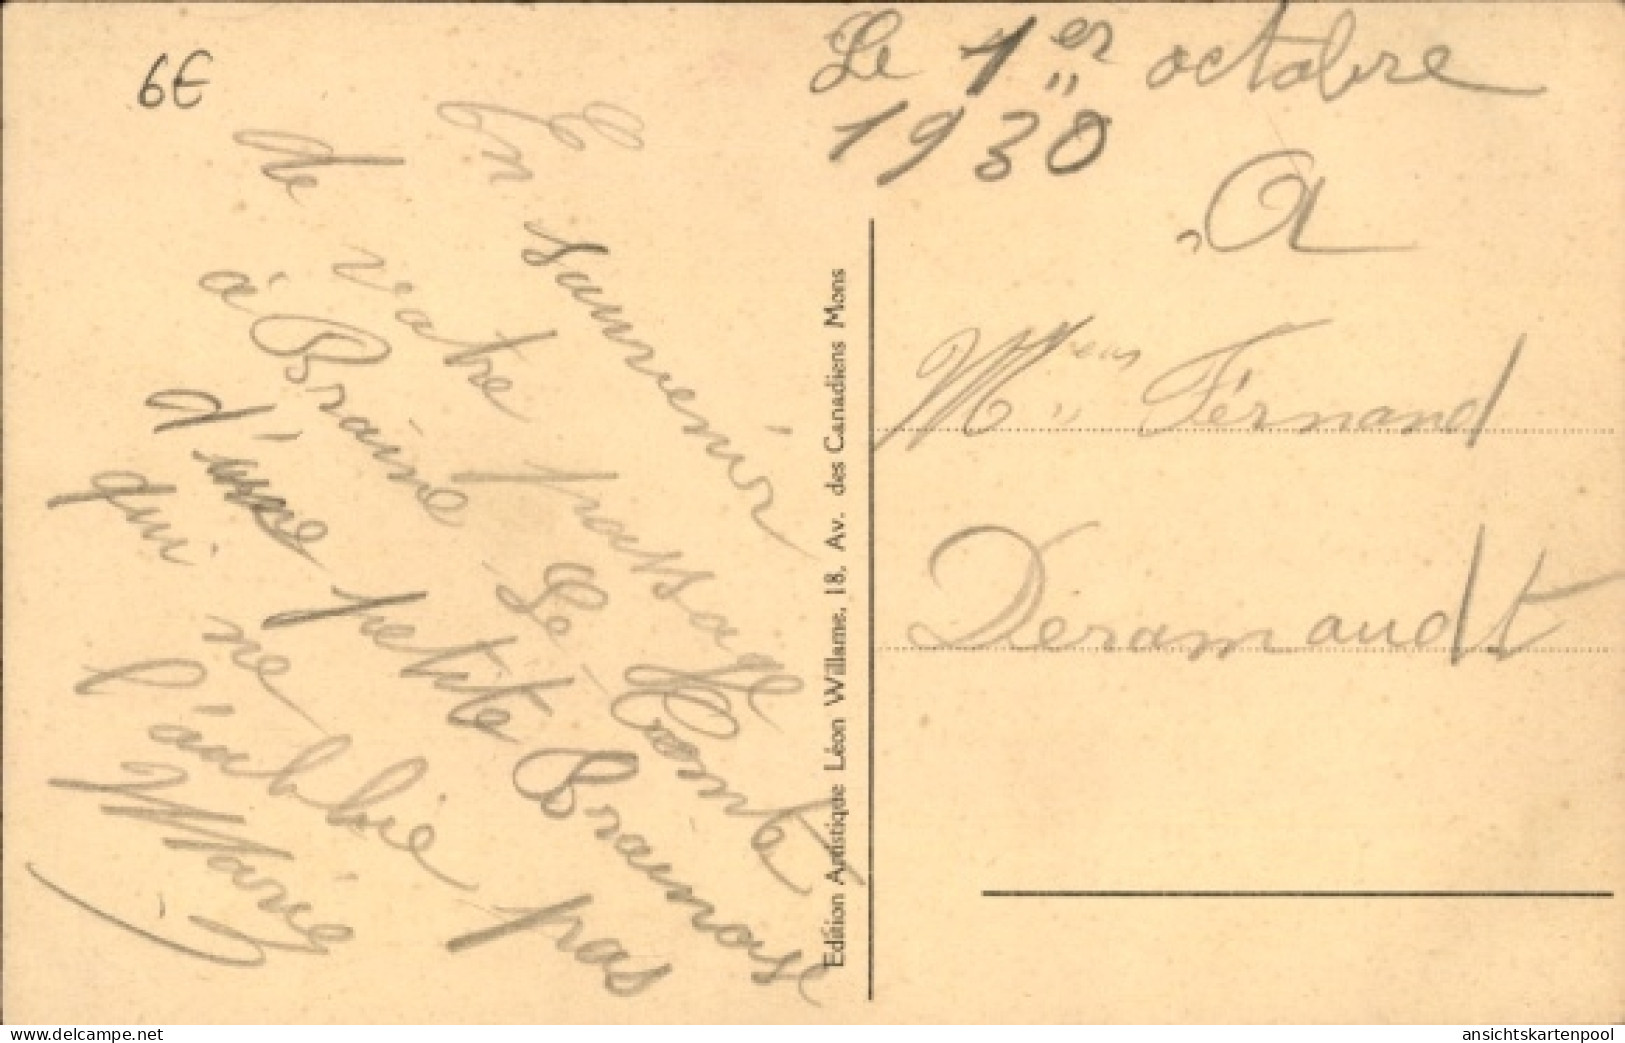 6€
Le 1er octobre
1930
A
Mr Férnand
Déramaudt
En souvenir
de votre passage
à Braine-Le-Comté
d'une petite Brainoise
qui ne l'oublie pas
Marie
Edition Artistique Léon Willame, 18, Av. des Canadiens Mons
www.delcampe.net
ansichtskartenpool